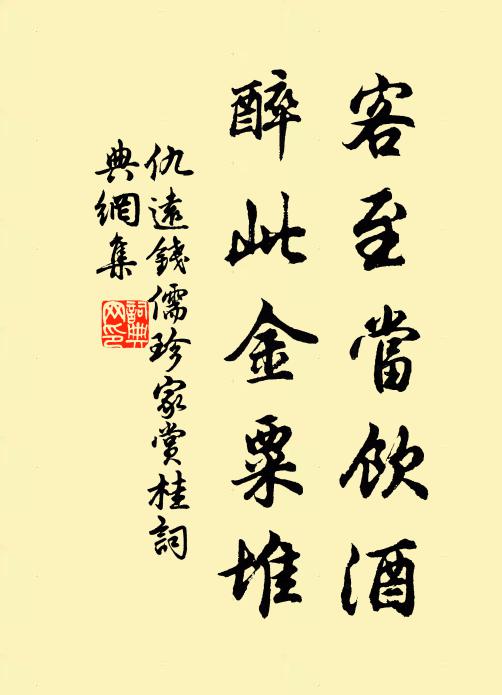 客至當飲酒
醉此金粟堆
仇遠錢儒珍家賞桂詞
典網集
詞典
网印